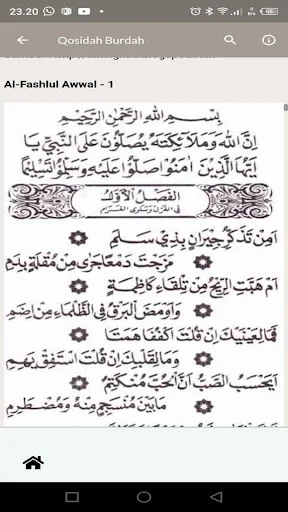 23.20
Qosidah Burdah
Al-Fashlul Awwal - 1
بِسْمِ اللهِ الرَّحْمٰنِ الرَّحِيْمِ
اِنَّ اللهَ وَمَلَآئِكَتَهُ يُصَلُّوْنَ عَلَى النَّبِيِّ يَا
اَيُّهَا الَّذِيْنَ اٰمَنُوْا صَلُّوْا عَلَيْهِ وَسَلِّمُوْا تَسْلِيْمًا
الفَصْلُ الْأَوَّلُ
فِي الْغَزَلِ وَشَكْوَى الْغَرَامِ
اَمِنْ تَذَكُّرِ جِيْرَانٍ بِذِيْ سَلَمِ
مَزَجْتَ دَمْعًا جَرَى مِنْ مُقْلَةٍ بِدَمِ
اَمْ هَبَّتِ الرِّيْحُ مِنْ تِلْقَاءِ كَاظِمَةٍ
وَاَوْمَضَ الْبَرْقُ فِي الظَّلْمَاءِ مِنْ اِضَمِ
فَمَا لِعَيْنَيْكَ اِنْ قُلْتَ اكْفُفَا هَمَتَا
وَمَا لِقَلْبِكَ اِنْ قُلْتَ اسْتَفِقْ يَهِمِ
اَيَحْسَبُ الصَّبُّ اَنَّ الْحُبَّ مُنْكَتِمٌ
مَا بَيْنَ مُنْسَجِمٍ مِنْهُ وَمُضْطَرِمِ